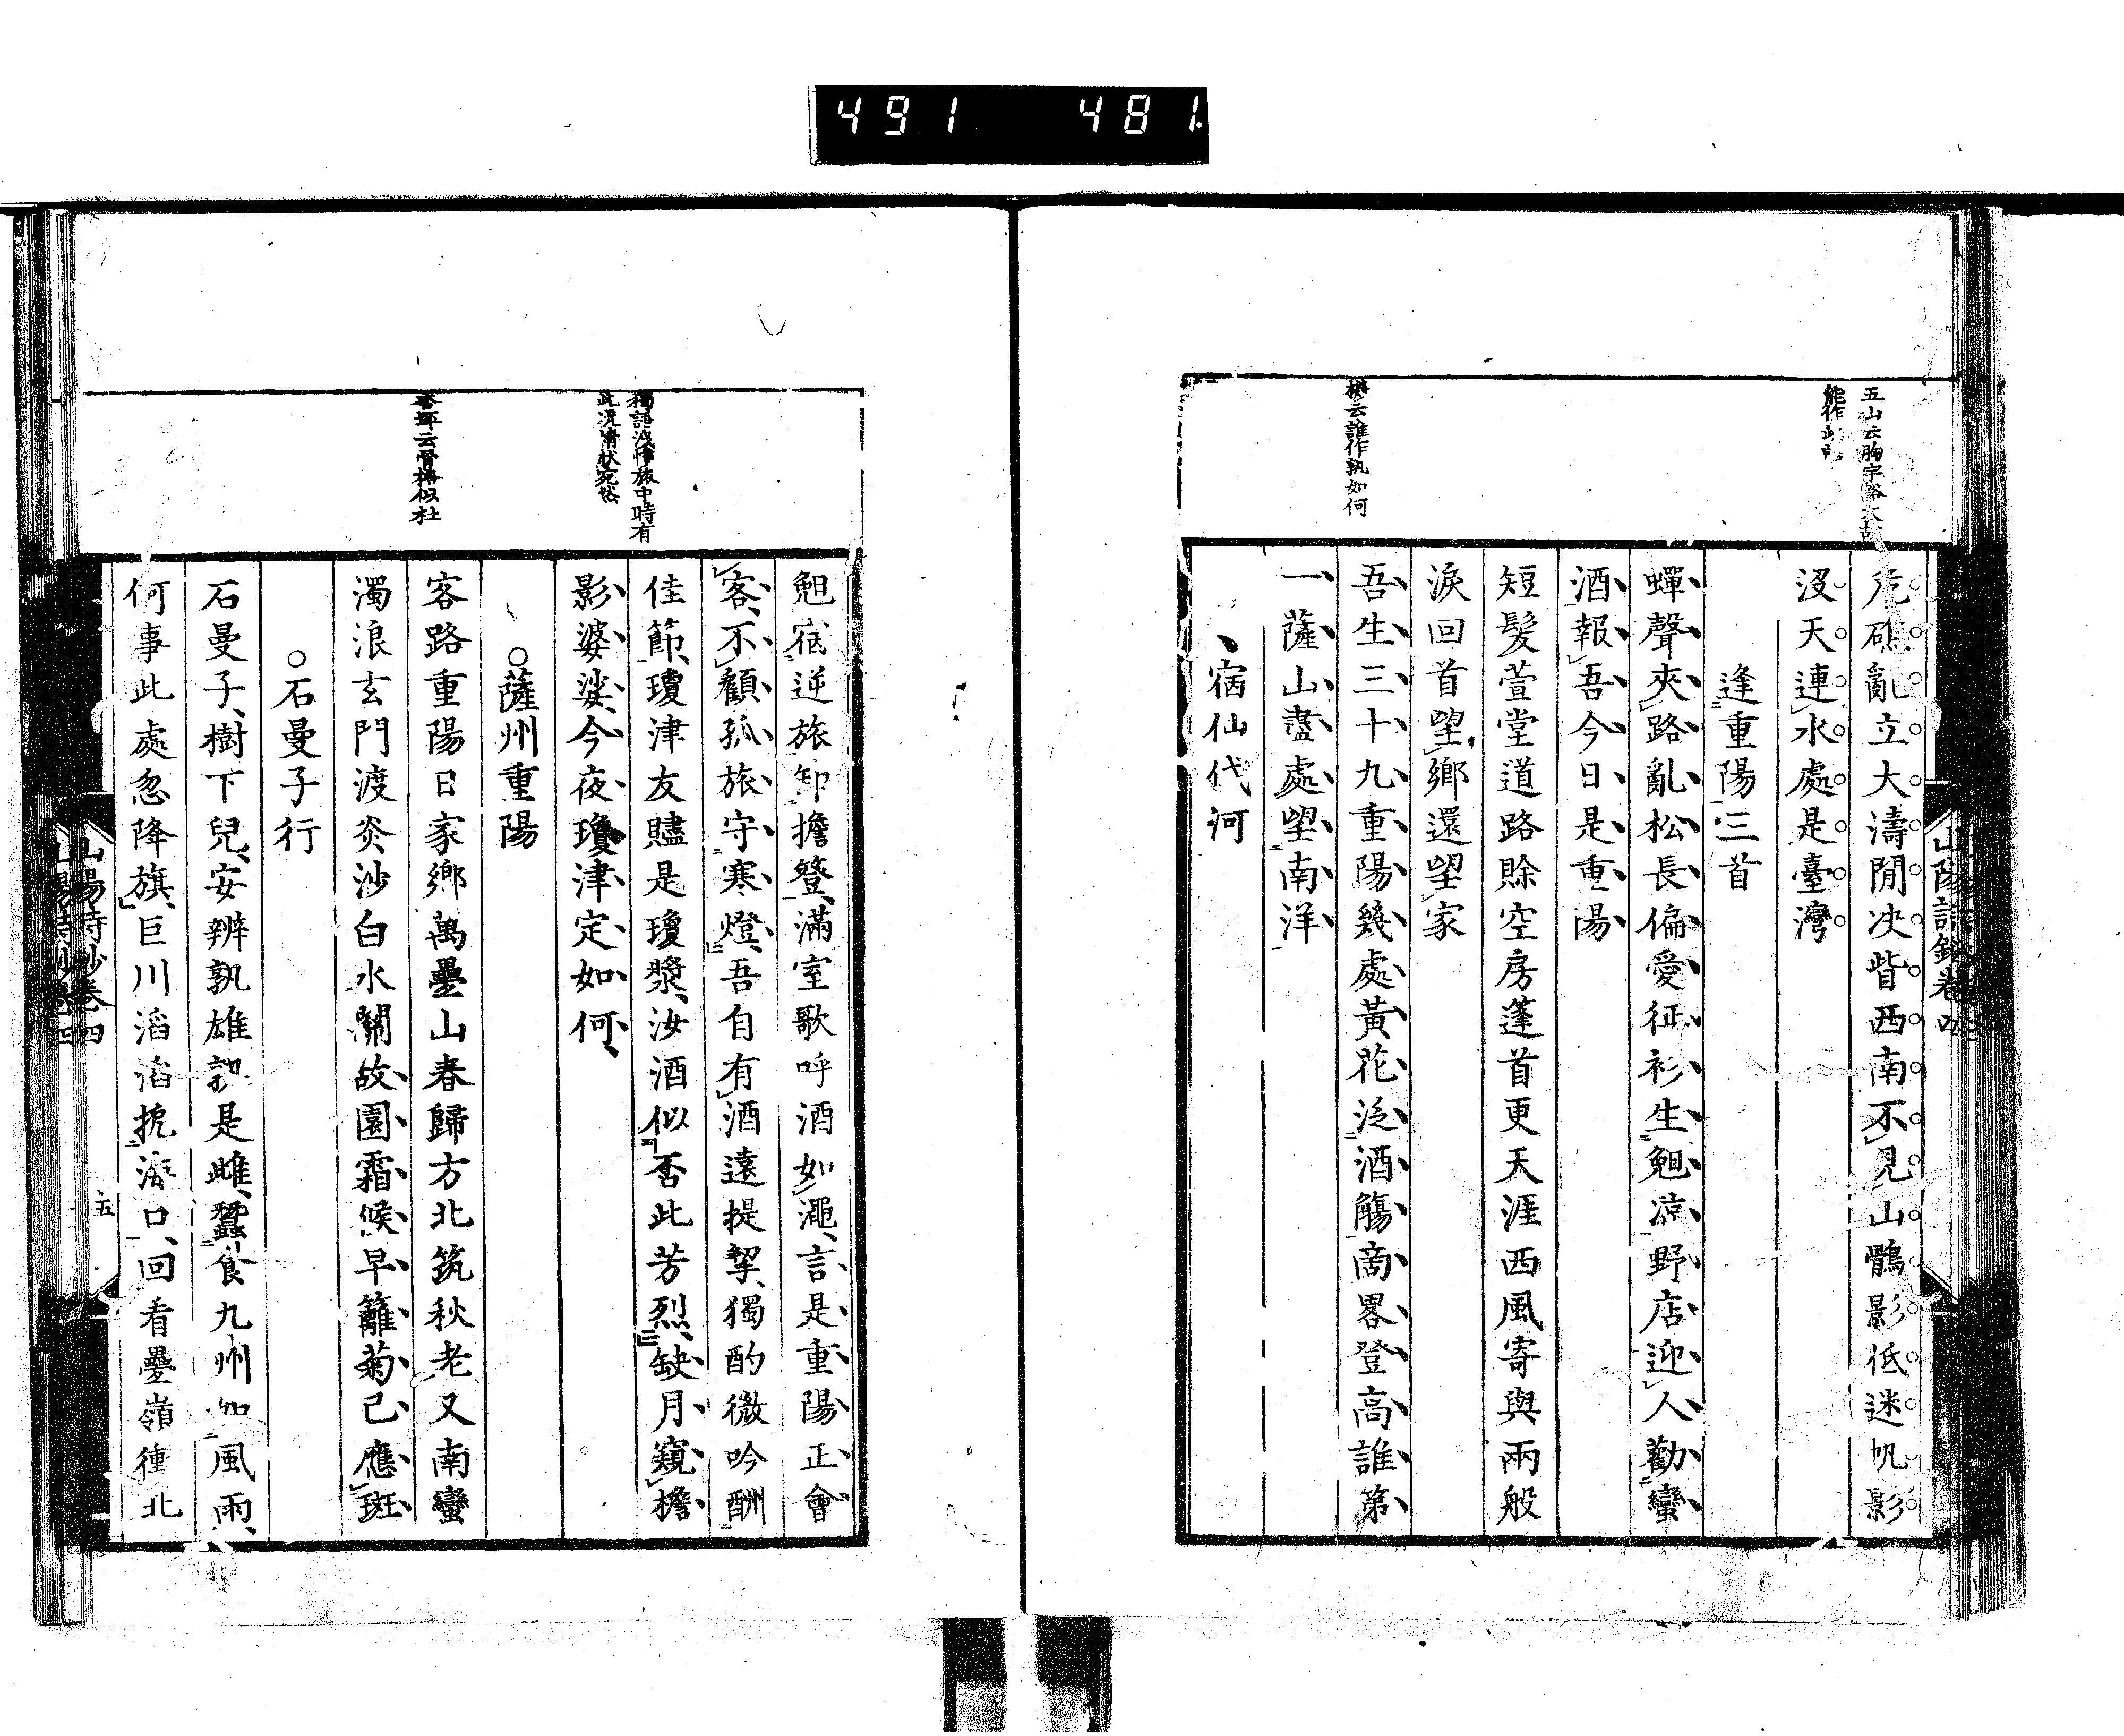 491 481
五山云胸字俗太故
能作此
危礁亂立大濤間决眥西南不見山鶻影低迷帆影
没天連水處是臺灣
逢重陽三首
蟬聲夾路亂松長偏愛征衫生䰟凉野店迎人勸蠻
酒報吾今日是重陽
短髮萱堂道路賖空房蓬首更天涯西風寄與兩般
淚回首望鄉還望家
云誰作孰如何
吾生三十九重陽幾處黃花泛酒觴啇畧登高誰第
一薩山盡處望南洋
宿仙代河
䰟宿逆旅卸擔簦滿室歌呼酒如澠言是重陽正會
客不顧孤旅守寒燈吾自有酒遠提挈獨酌微吟酬
獨語淺悽旅中時有
此况情狀宛然
佳節瓊津友贐是瓊漿汝酒似否此芳烈缺月窺檐
影婆娑今夜瓊津定如何
○薩州重陽
杏坪云骨格似杜
客路重陽日家鄉萬疊山春歸方北筑秋老又南蠻
濁浪玄門渡炎沙白水關故園霜候早籬菊已應斑
○石曼子行
石曼子樹下兒安辨孰雄孰是雌蠶食九州如風雨
何事此處忽降旗巨川滔滔扼海口回看疊嶺衝北
山陽詩鈔卷四
五